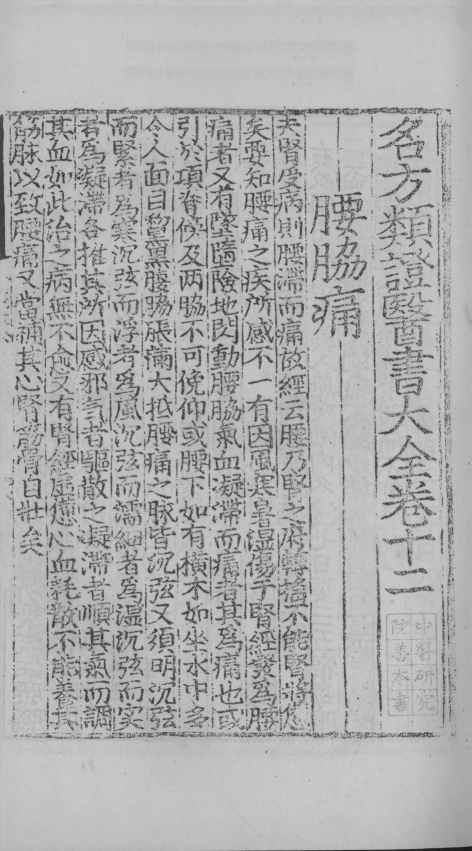 名方類證醫書大全卷十二
腰脇痛
夫腎受病則腰滯而痛故經云腰乃腎之府轉搖不能腎將憊
矣要知腰痛之疾所感不一有因風寒暑濕傷于腎經發為腰
痛者又有墜墮險地閃動腰脇氣血凝滯而痛者其為痛也或
引於項脊僚及两脇不可俛仰或腰下如有横木如坐水中多
令人面目黧黑腹脇脹滿大抵腰痛之脉皆沉弦又須明沉弦
而緊者為寒沉弦而浮者為風沉弦而濡細者為濕沉弦而实
者為凝滯各推其所因感邪氣者驅散之凝滯者順其氣而調
其血如此治之病無不愈又有腎經虚憊心血耗散不能養其
筋脉以致腰痛又當補其心腎筋骨自壮矣
中醫研究
院善本書